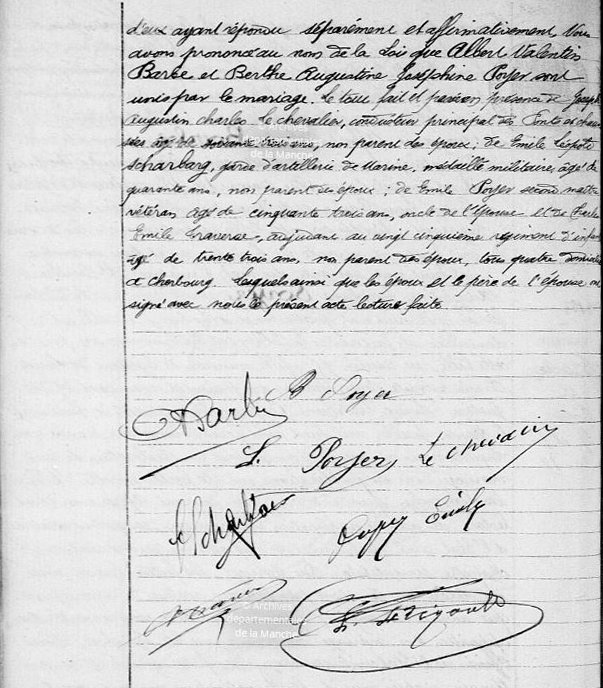 d'eux ayant répondu séparément et affirmativement Nous
avons prononcé au nom de la Loi que Albert Valentin
Barbé et Berthe Augustine Joséphine Poyer sont
unis par le mariage. Le tout fait et passé en présence de Joseph
Augustin Charles Le Chevalier, conducteur principal des Ponts et chaus
sées âgé de soixante trois ans, non parent des époux; de Emile Léopold
Scharbarg, garde d'artillerie de Marine, médaillé militaire, âgé de
quarante ans, non parent des époux; de Emile Poyer second maître
vétéran âgé de cinquante trois ans, oncle de l'épouse et de Charles
Emile Traverse, adjudant au vingt cinquième régiment d'infant
âgé de trente trois ans, non parent des époux, tous quatre domiciliés
à Cherbourg. Lesquels ainsi que les époux et le père de l'épouse ont
signé avec nous le présent acte lecture faite
B Poyer
L. Poyer Le Chevalier
Emile
© Archives
départementales
de la Manche
© Archives
départementales
de la Manche